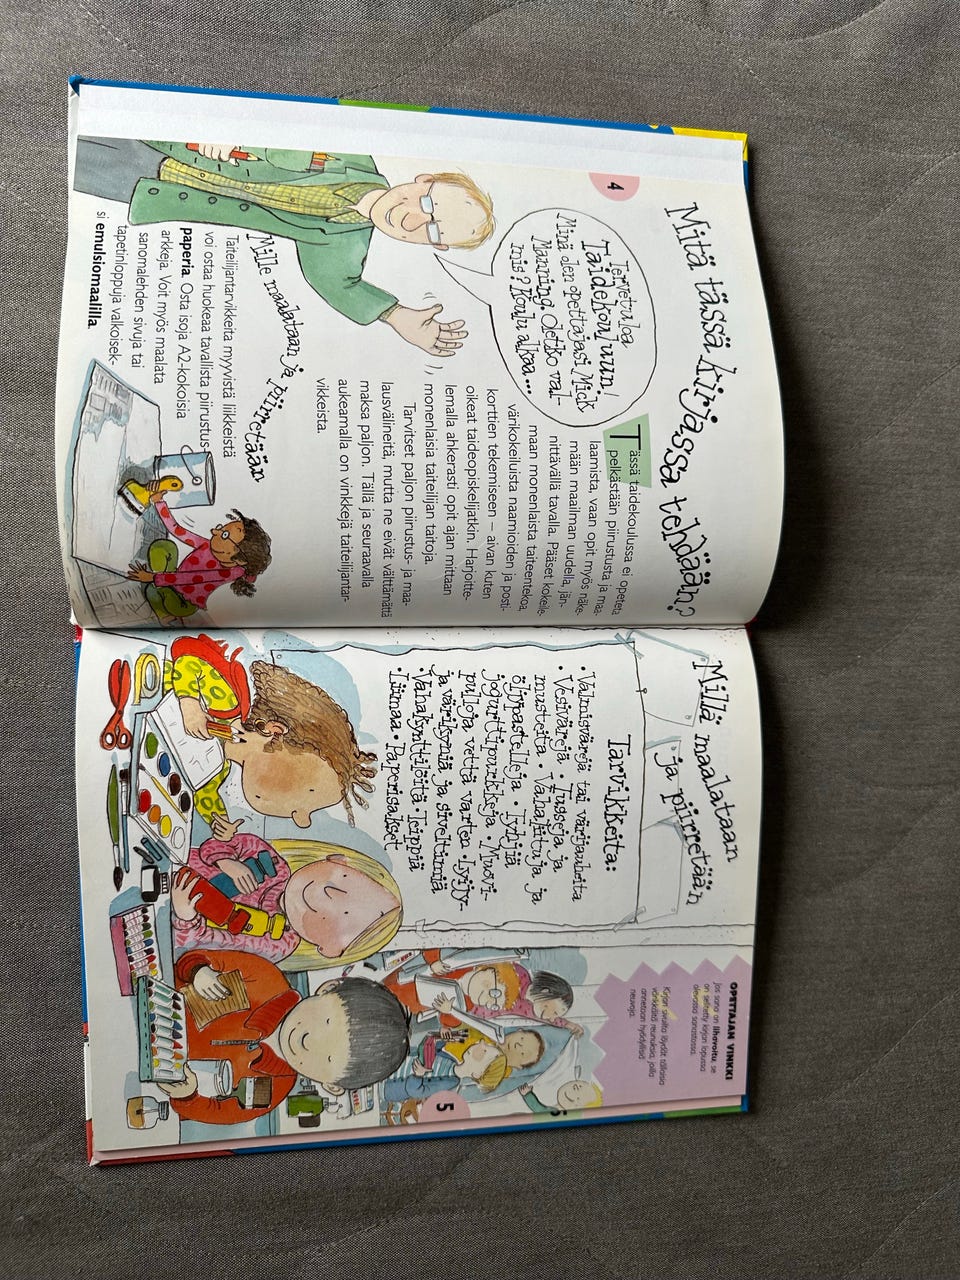 4
Mitä tässä kirjassa tehdään?
Tervetuloa
Taidekouluun!
Minä olen opettajasi Mick
Manning. Oletko val-
mis? Koulu alkaa...
Tässä taidekoulussa ei opeteta
pelkästään piirustusta ja maa-
laamista, vaan opit myös näke-
mään maailman uudella, jän-
nittävällä tavalla. Pääset kokeile-
maan monenlaista taiteentekoa
värikokeiluista naamioiden ja posti-
korttien tekemiseen – aivan kuten
oikeat taideopiskelijatkin. Harjoitte-
lemalla ahkerasti opit ajan mittaan
monenlaisia taiteilijan taitoja.
Tarvitset paljon piirustus- ja maa-
lausvälineitä, mutta ne eivät välttämättä
maksa paljon. Tällä ja seuraavalla
aukeamalla on vinkkejä taiteilijantar-
vikkeista.
Mille maalataan ja piirretään
Taiteilijantarvikkeita myyvistä liikkeistä
voi ostaa huokeaa tavallista piirustus-
paperia. Osta isoja A2-kokoisia
arkkeja. Voit myös maalata
sanomalehden sivuja tai
tapetinloppuja valkoisek-
si emulsiomaalilla.
Millä maalataan
ja piirretään
Tarvikkeita:
• Valmisvärejä tai värijauheita
• Vesivärejä • Tusseja ja
musteita • Vahaliituja ja
öljypastelleja • Tyhjiä
jogurttipurkkeja • Muovi-
pulloja vettä varten • Lyijy-
ja värikyniä ja siveltimiä
• Vahakynttilöitä • Teippiä
• Liimaa • Paperisakset
OPETTAJAN VINKKI
Jos sana on lihavoitu, se
on selitetty kirjan lopussa
olevassa sanastossa.
Kirjan sivuilta löydät tällaisia
vinkkilaatikoita, joilla
annetaan hyödyllisiä
neuvoja.
5